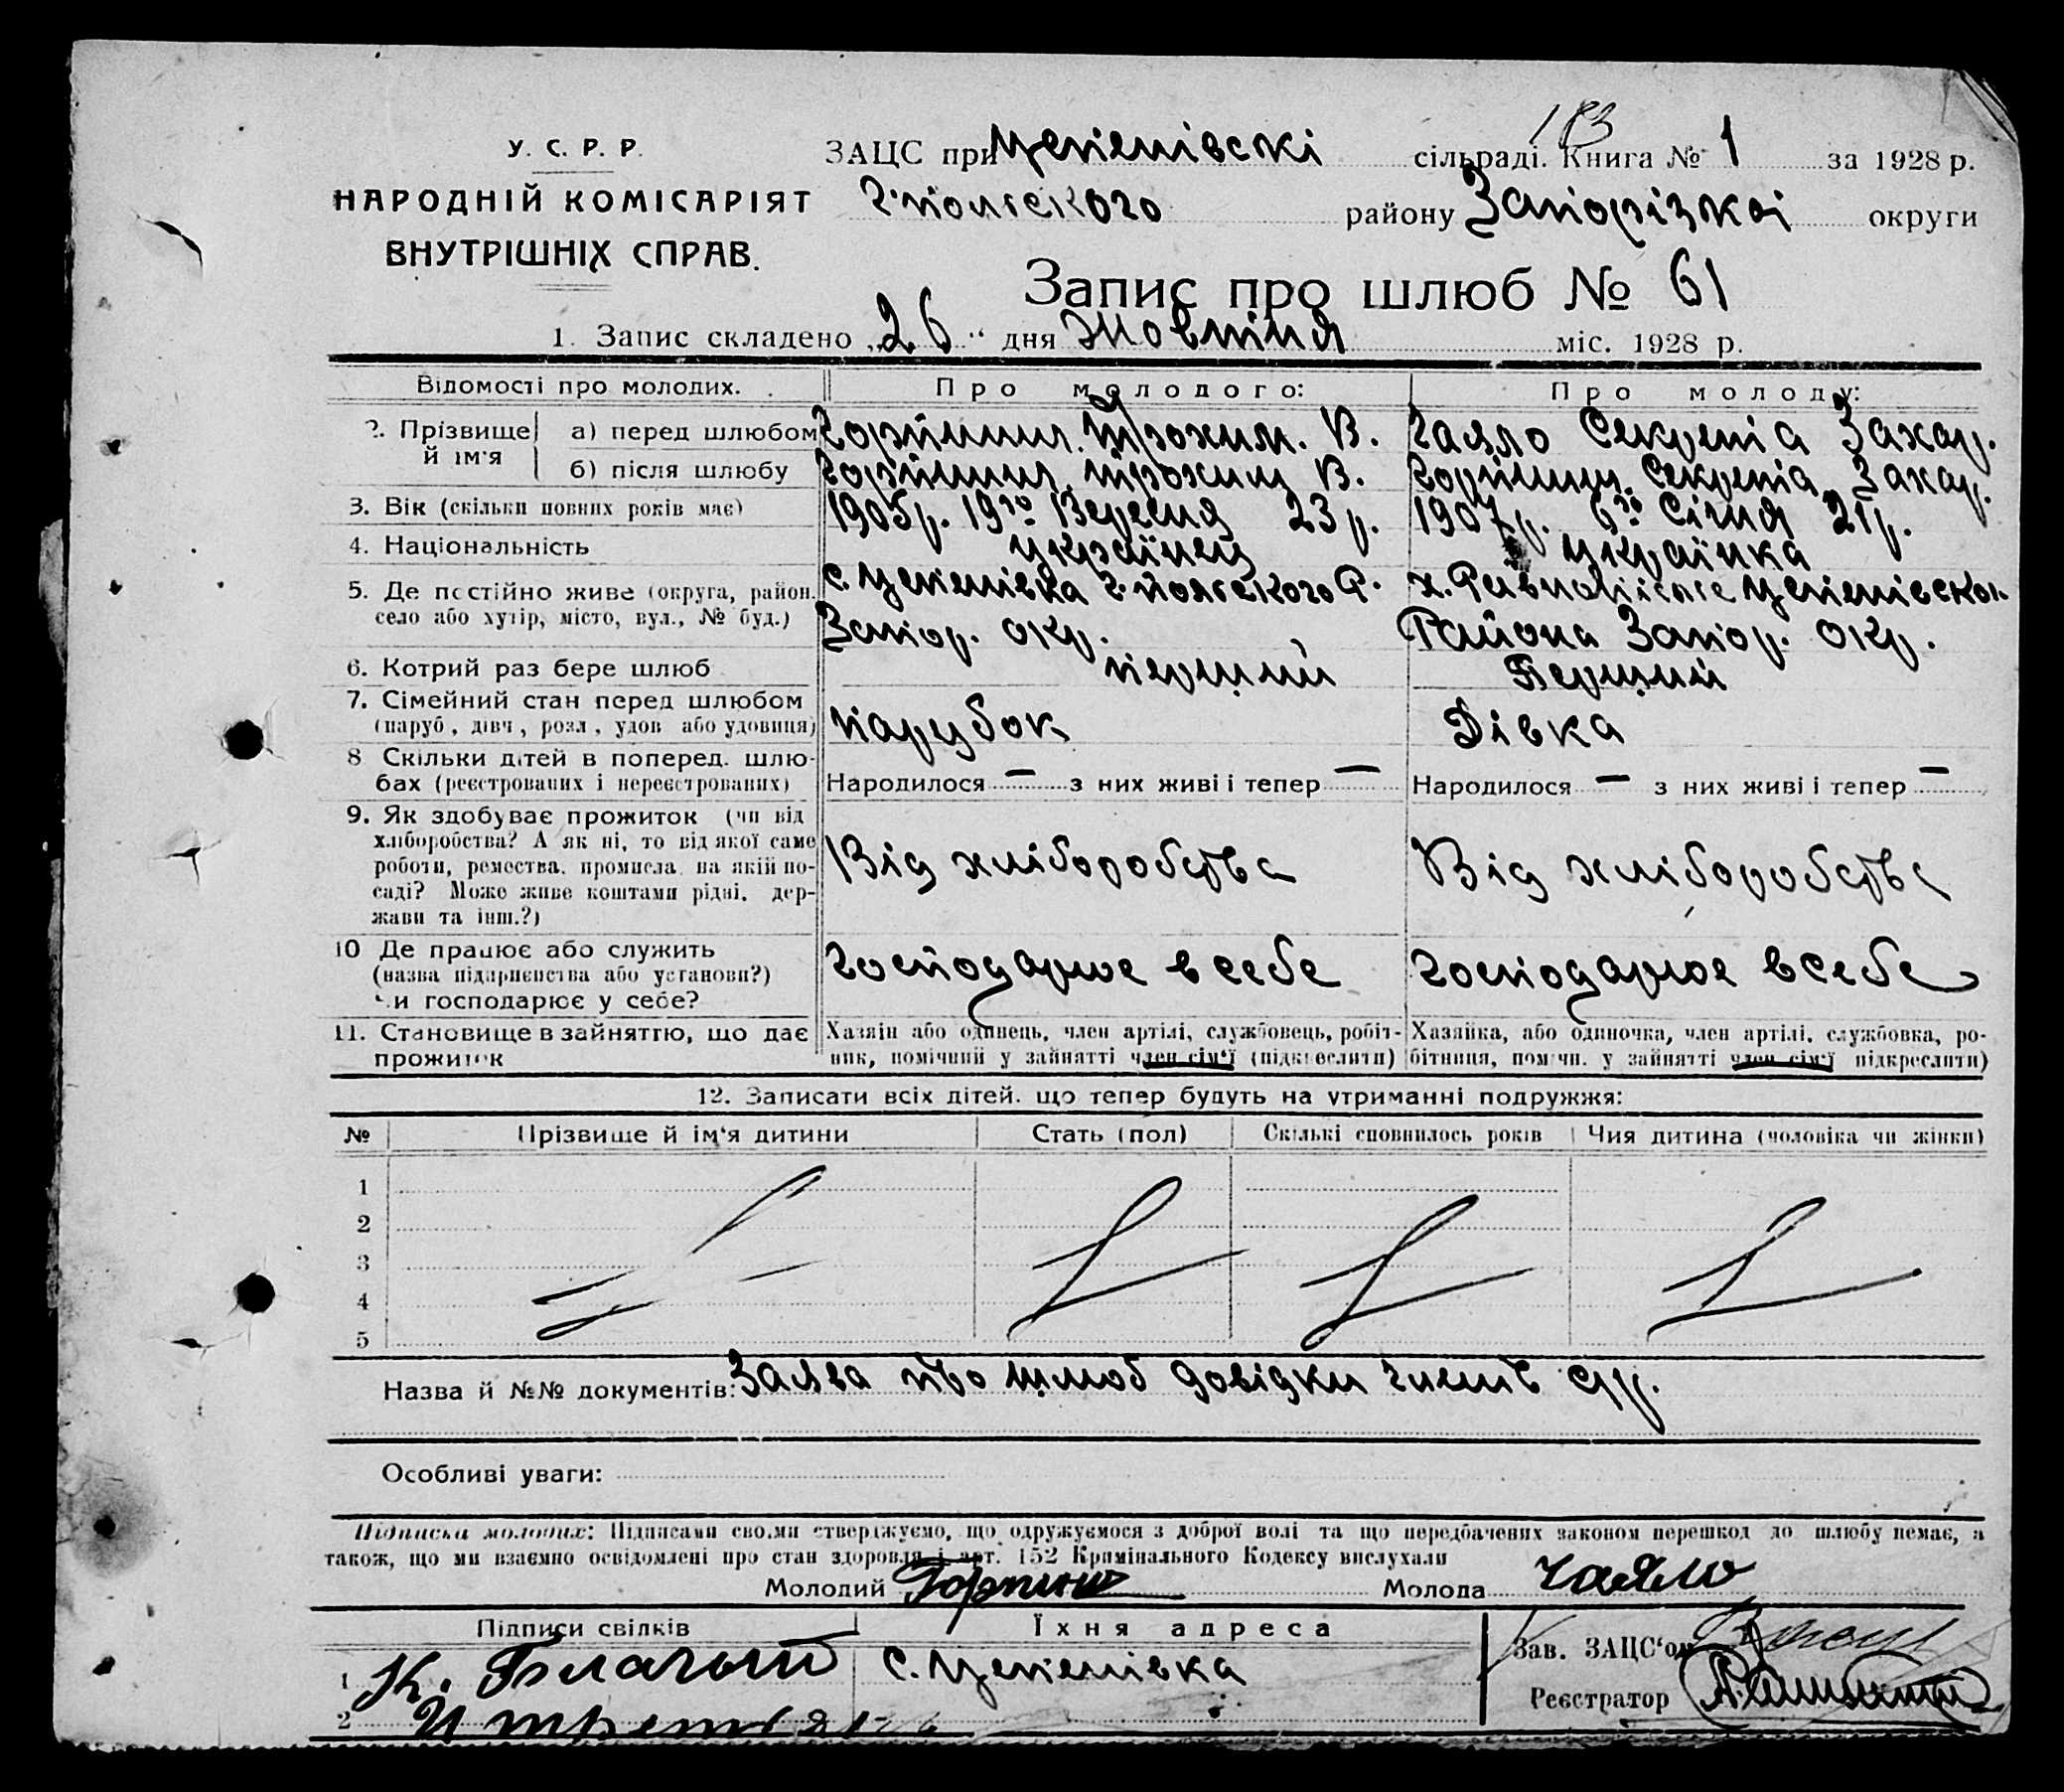 У. С. Р. Р.
НАРОДНІЙ КОМІСАРІЯТ
ВНУТРІШНІХ СПРАВ.
ЗАЦС при сільраді. Книга № 1 за 1928 р.
Г-польского району Запорізкоі округи
Запис про шлюб № 61
1. Запис складено „26“ дня Жовтня міс. 1928 р.
Відомості про молодих. Про молодого: Про молоду:
2. Прізвище й ім'я
а) перед шлюбом Горпинич Трохим. В. Гаяло Секретіа Захар.
б) після шлюбу Горпинич Трохим В. Горпинич Секретіа Захар.
3. Вік (скільки повних років має) 1905 р. 19го Вересня 23 р. 1907 р. 6го Січня 21 р.
4. Національність українец українка
5. Де постійно живе (округа, район, село або хутір, місто, вул., № буд.) с. Г-польского Р. Запор. окр. Района Запор. окр.
6. Котрий раз бере шлюб перший Перший
7. Сімейний стан перед шлюбом (паруб, дівч, розл, удов або удовиця) парубок Дівка
8 Скільки дітей в поперед. шлюбах (реєстрованих і нереєстрованих) Народилося — з них живі і тепер — Народилося — з них живі і тепер —
9. Як здобуває прожиток (чи від хліборобства? А як ні, то від якої саме роботи, ремества, промисла, на якій посаді? Може живе коштами рідні, держави та інш.?) Від хліборобства Від хліборобства
10 Де працює або служить (назва підприємства або установи?) чи господарює у себе? господарює в себе господарює в себе
11. Становище в зайняттю, що дає прожиток Хазяїн або одинець, член артілі, службовець, робітник, помічний у зайнятті член сім'ї (підкреслити) Хазяйка, або одиночка, член артілі, службовка, робітниця, помічн. у зайнятті член сім'ї підкреслити)
12. Записати всіх дітей, що тепер будуть на утриманні подружжя:
№ Прізвище й ім'я дитини Стать (пол) Скількі сповнилось років Чия дитина (чоловіка чи жінки)
1
2
3
4
5
Назва й №№ документів: Заява про шлюб довідки
Особливі уваги:
Підписка молодих: Підписами своїми стверджуємо, що одружуємося з доброї волі та що передбачених законом перешкод до шлюбу немає, а
також, що ми взаємно освідомлені про стан здоровля і арт. 152 Кримінального Кодексу вислухали
Молодий Горпинич Молода Гаяло
Підписи свідків Їхня адреса Зав. ЗАЦС'ом
1 К. с.
Реєстратор
2